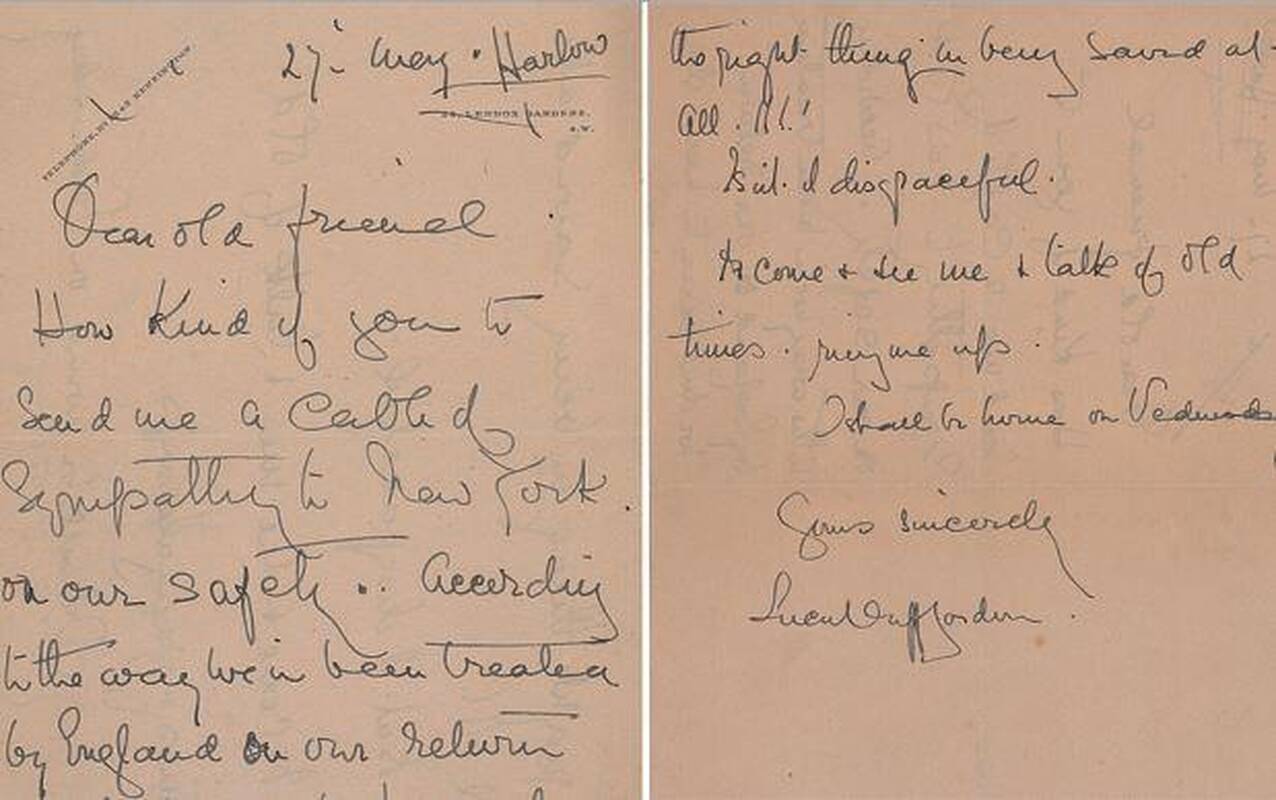 27 May. Harlow
TELEPHONE, KENSINGTON
LENNOX GARDENS,
S.W.
Dear old friend.
How kind of you to
Send me a cable of
Sympathy to New York.
on our safety.. According
to the way we've been treated
by England on our return
the right thing in being saved at-
all.!!!
Isn't it disgraceful.
to come & see me & talk of old
times. ring me up.
I shall be home on
Yours sincerely
Lucile Duff Gordon.